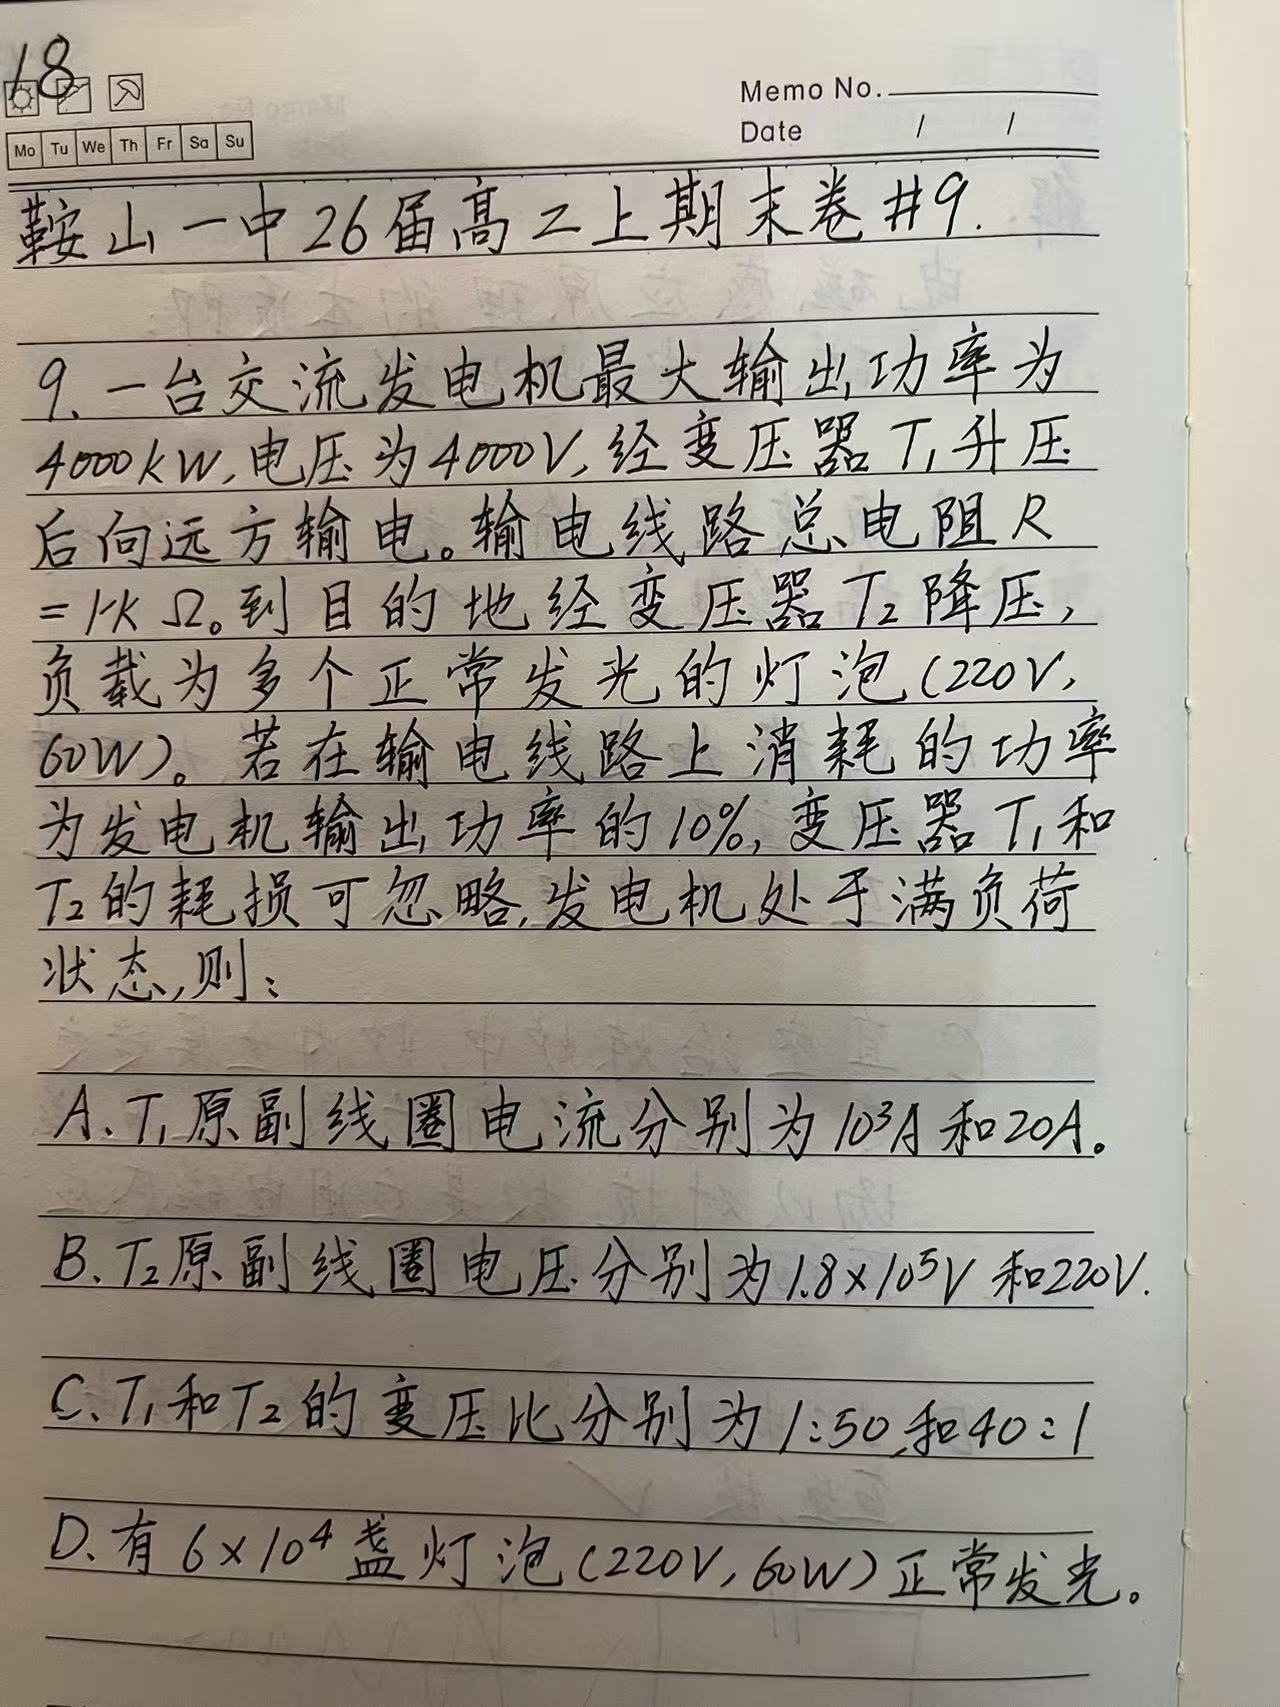 18
Memo No.
Mo Tu We Th Fr Sa Su
Date / /
鞍山一中26届高二上期末卷#9.
9.一台交流发电机最大输出功率为
4000kW,电压为4000V,经变压器T₁升压
后向远方输电。输电线路总电阻R
=1kΩ。到目的地经变压器T₂降压,
负载为多个正常发光的灯泡(220V,
60W)。若在输电线路上消耗的功率
为发电机输出功率的10%,变压器T₁和
T₂的耗损可忽略,发电机处于满负荷
状态,则:
A.T₁原副线圈电流分别为10³A和20A。
B.T₂原副线圈电压分别为1.8×10⁵V和220V.
C.T₁和T₂的变压比分别为1:50和40:1
D.有6×10⁴盏灯泡(220V,60W)正常发光。